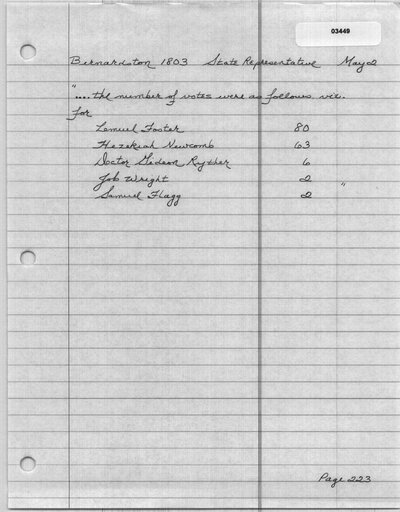 03449
Bernardston 1803 State Representative May 2
".... the number of votes were as follows, viz.
for
Lemuel Foster 80
Hezekiah Newcomb 63
Doctor Gideon Ryther 6
Job Wright 2 "
Samuel Flagg 2
Page 223